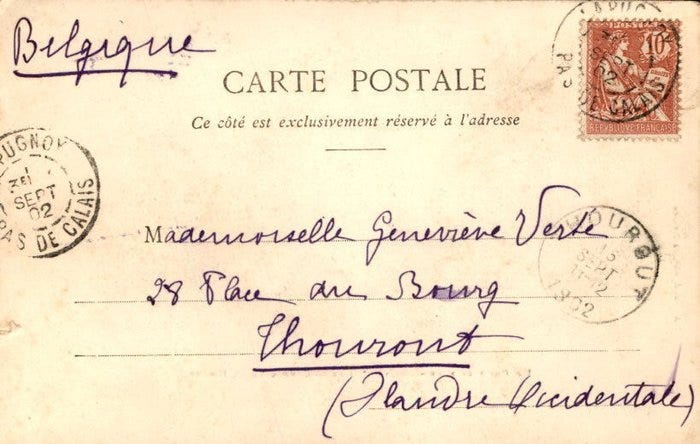 Belgique
CARTE POSTALE
Ce côté est exclusivement réservé à l'adresse
POSTES
10
REPUBLIQUE FRANÇAISE
LAPUGNOY
SEPT
02
PAS DE CALAIS
PUGNOY
1
SEPT
02
PAS DE CALAIS
THOUROUT
SEPT
1902
Mademoiselle Geneviève Verte
28 Place du Bourg
Thouront
(Flandre Occidentale)